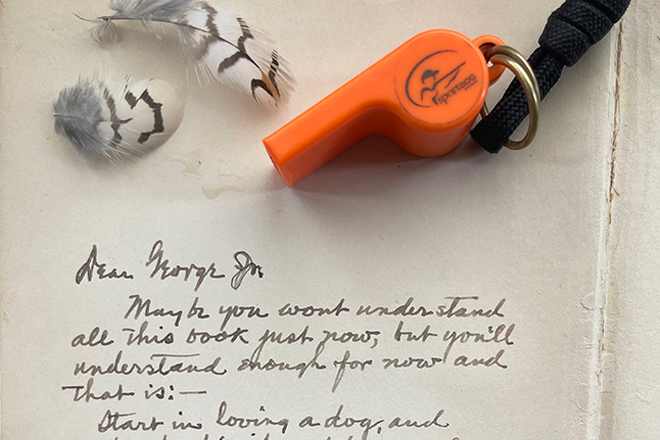 SportDOG
Dear George Jr.
Maybe you wont understand
all this book just now, but you'll
understand enough for now and
that is:—
Start in loving a dog, and